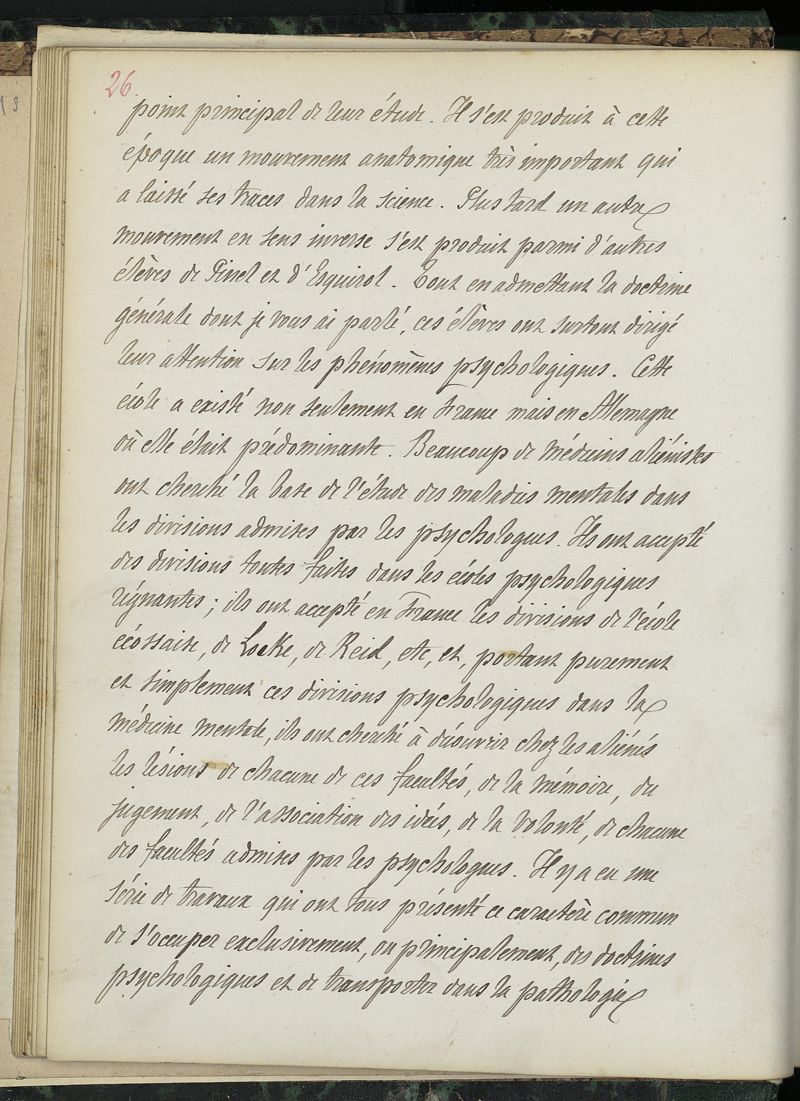 26.
point principal de leur étude. Il s'est produit à cette
époque un mouvement anatomique très important qui
a laissé ses traces dans la science. Plus tard un autre
mouvement en sens inverse s'est produit parmi d'autres
élèves de Pinel et d'Esquirol. Tout en admettant la doctrine
générale dont je vous ai parlé, ces élèves ont surtout dirigé
leur attention sur les phénomènes psychologiques. Cette
école a existé non seulement en France mais en Allemagne
où elle était prédominante. Beaucoup de médecins aliénistes
ont cherché la base de l'étude des maladies mentales dans
les divisions admises par les psychologues. Ils ont accepté
des divisions toutes faites dans les écoles psychologiques
régnantes; ils ont accepté en France les divisions de l'école
écossaise, de Locke, de Reid, etc, et, portant purement
et simplement ces divisions psychologiques dans la
médecine mentale, ils ont cherché à découvrir chez les aliénés
les lésions de chacune de ces facultés, de la mémoire, du
jugement, de l'association des idées, de la volonté, de chacune
des facultés admises par les psychologues. Il y a eu une
série de travaux qui ont tous présenté ce caractère commun
de s'occuper exclusivement, ou principalement, des doctrines
psychologiques et de transporter dans la pathologie